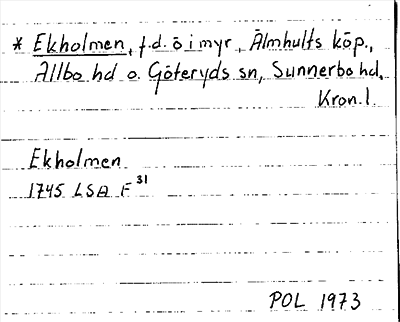 * Ekholmen, f.d. ö i myr, Älmhults köp.,
Allbo hd o. Göteryds sn, Sunnerbo hd,
Kron. l.
Ekholmen
1745 LSA F 31
POL 1973